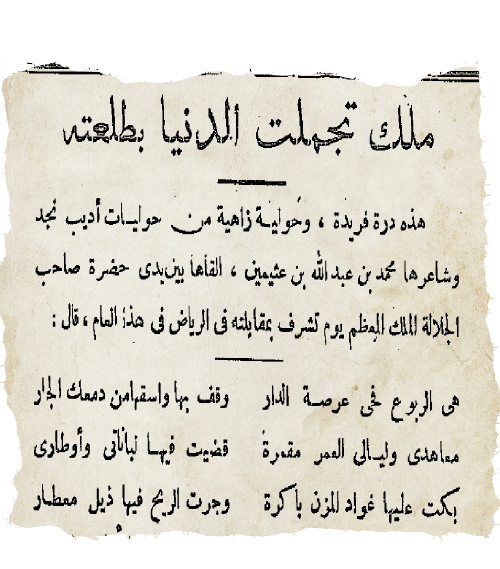 ملك تجملت الدنيا بطلعته
هذه درة فريدة ، وحولية زاهية من حوليات أديب نجد
وشاعرها محمد بن عبد الله بن عثيمين ، القاها بين يدى حضرة صاحب
الجلالة الملك المعظم يوم تشرف بمقابلته فى الرياض فى هذا العام ، قال :
هى الربوع فحى عرصة الدار وقف بها واسقهامن دمعك الجار
معاهدى وليالى العمر مقمرة قضيت فيها لباناتى وأوطارى
بكت عليها غواد المزن باكرة وجرت الريح فيها ذيل معطار